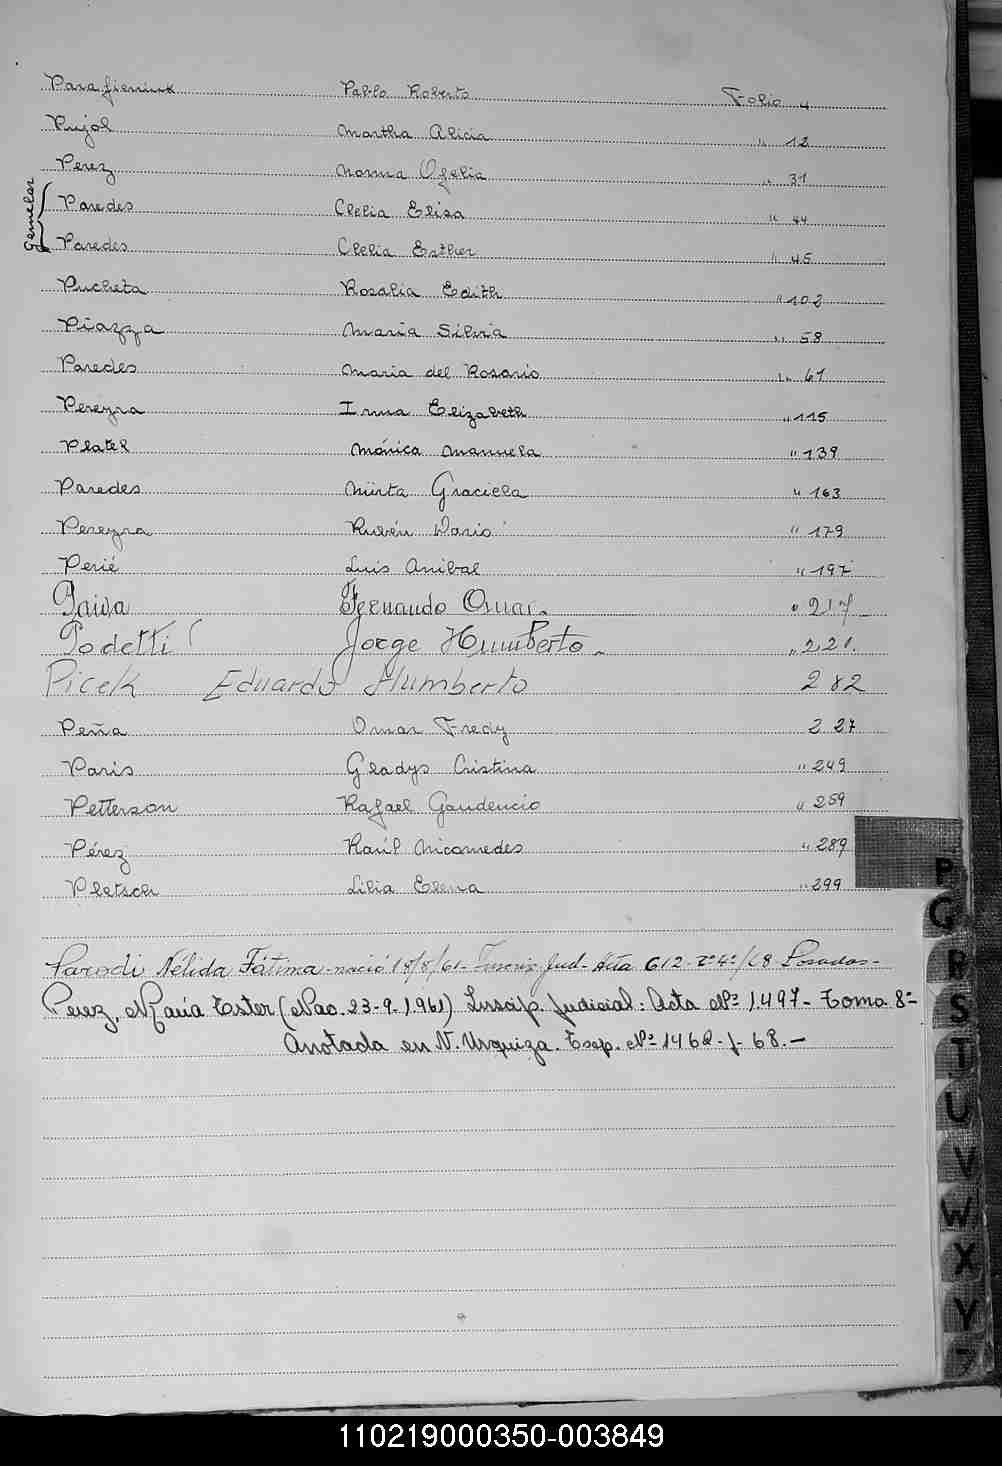 Parafieniuk Pablo Roberto Folio 4
Pujol Martha Alicia " 12
Perez Norma Ofelia " 31
Gemelas
Paredes Clelia Elisa " 44
Paredes Clelia Esther " 45
Pucheta Rosalia Edith " 102
Piazza Maria Silvia " 58
Paredes Maria del Rosario " 61
Pereyra Irma Elizabeth " 115
Platel Mónica Manuela " 139
Paredes Mirta Graciela " 163
Pereyra Rubén Dario " 179
Perié Luis Anibal " 197
Paiva Fernando Omar - " 217
Podetti Jorge Humberto - " 221.
Picek Eduardo Humberto 282
Peña Omar Fredy 227
Paris Gladys Cristina " 249
Petterson Rafael Gaudencio " 259
Pérez Raúl Nicomedes " 289
Pletsch Lilia Elena " 299
Parodi Nélida Fátima - nació /61 - Inscrip Jud - Acta 612 - Tº 4º / 68 Posadas -
Perez, María Ester (Nac. 23-9-1961) Inscrip. Judicial: Acta Nº 1.497 - Tomo 8º -
Anotada en V. Urquiza. Exp. Nº 1462 - f - 68. -
P
Q
R
S
T
U
V
W
X
Y
Z
110219000350-003849